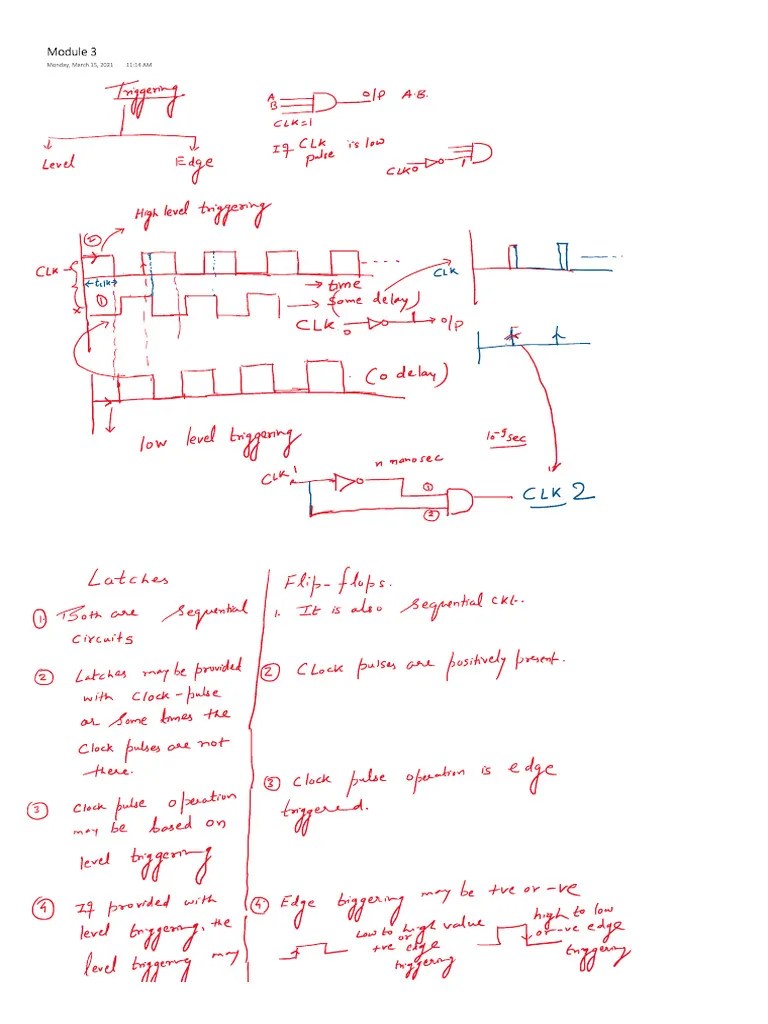 Module 3
Monday, March 15, 2021 11:14 AM
Triggering
Level
Edge
A
B
CLK=1
O/P A.B.
If CLK pulse is low
CLK 0
1
High level triggering
2
CLK
tclk
1
time
Some delay)
CLK
0
1
O/P
CLK
(0 delay)
low level triggering
10-9 sec
CLK 1
n nano sec
1
2
CLK 2
Latches
1. Both are Sequential
circuits
2 Latches may be provided
with clock-pulse
or Some times the
Clock pulses are not
there.
3 Clock pulse operation
may be based on
level triggering
4 If provided with
level triggering, the
level triggering may
Flip-flops.
1. It is also Sequential ckt.
2 Clock pulses are positively present.
3 Clock pulse operation is edge
triggered.
4 Edge triggering may be +ve or -ve
Low to high value
or
+ve edge
triggering
high to low
or -ve edge
triggering